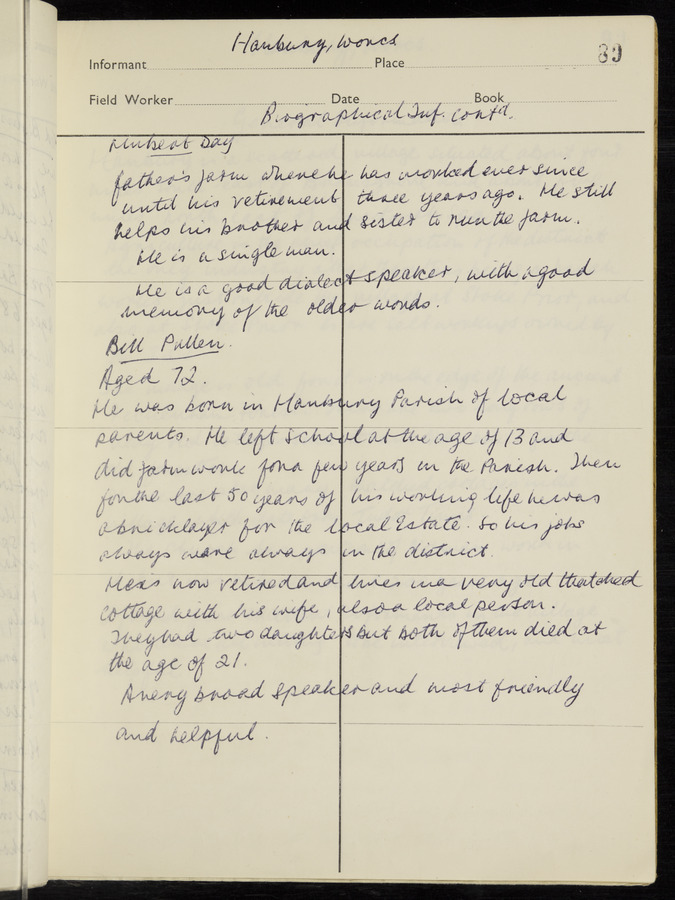 Hanbury, Worcs
Informant Place 89
Field Worker Date Book
Biographical Inf. contd.
Hubert Day
father's farm where he has worked ever since
until his retirement three years ago. He still
helps his brother and sister to run the farm.
He is a single man.
He is a good dialect speaker, with a good
memory of the older words.
Bill Pullen.
Aged 72.
He was born in Hanbury Parish of local
parents. He left school at the age of 13 and
did farm work for a few years in the Parish. Then
for the last 50 years of his working life he was
a bricklayer for the local Estate. So his jobs
always were always in the district.
He is now retired and lives in a very old thatched
cottage with his wife, also a local person.
They had two daughters but both of them died at
the age of 21.
A very broad speaker and most friendly
and helpful.